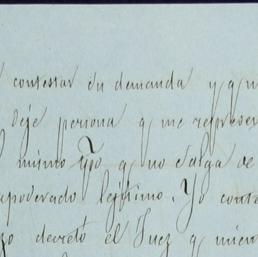 contestar su demanda y q
deje persona q me represen
mismo tpo q no salga de
apoderado lejitimo. Yo conte
decreto el Juez q mien